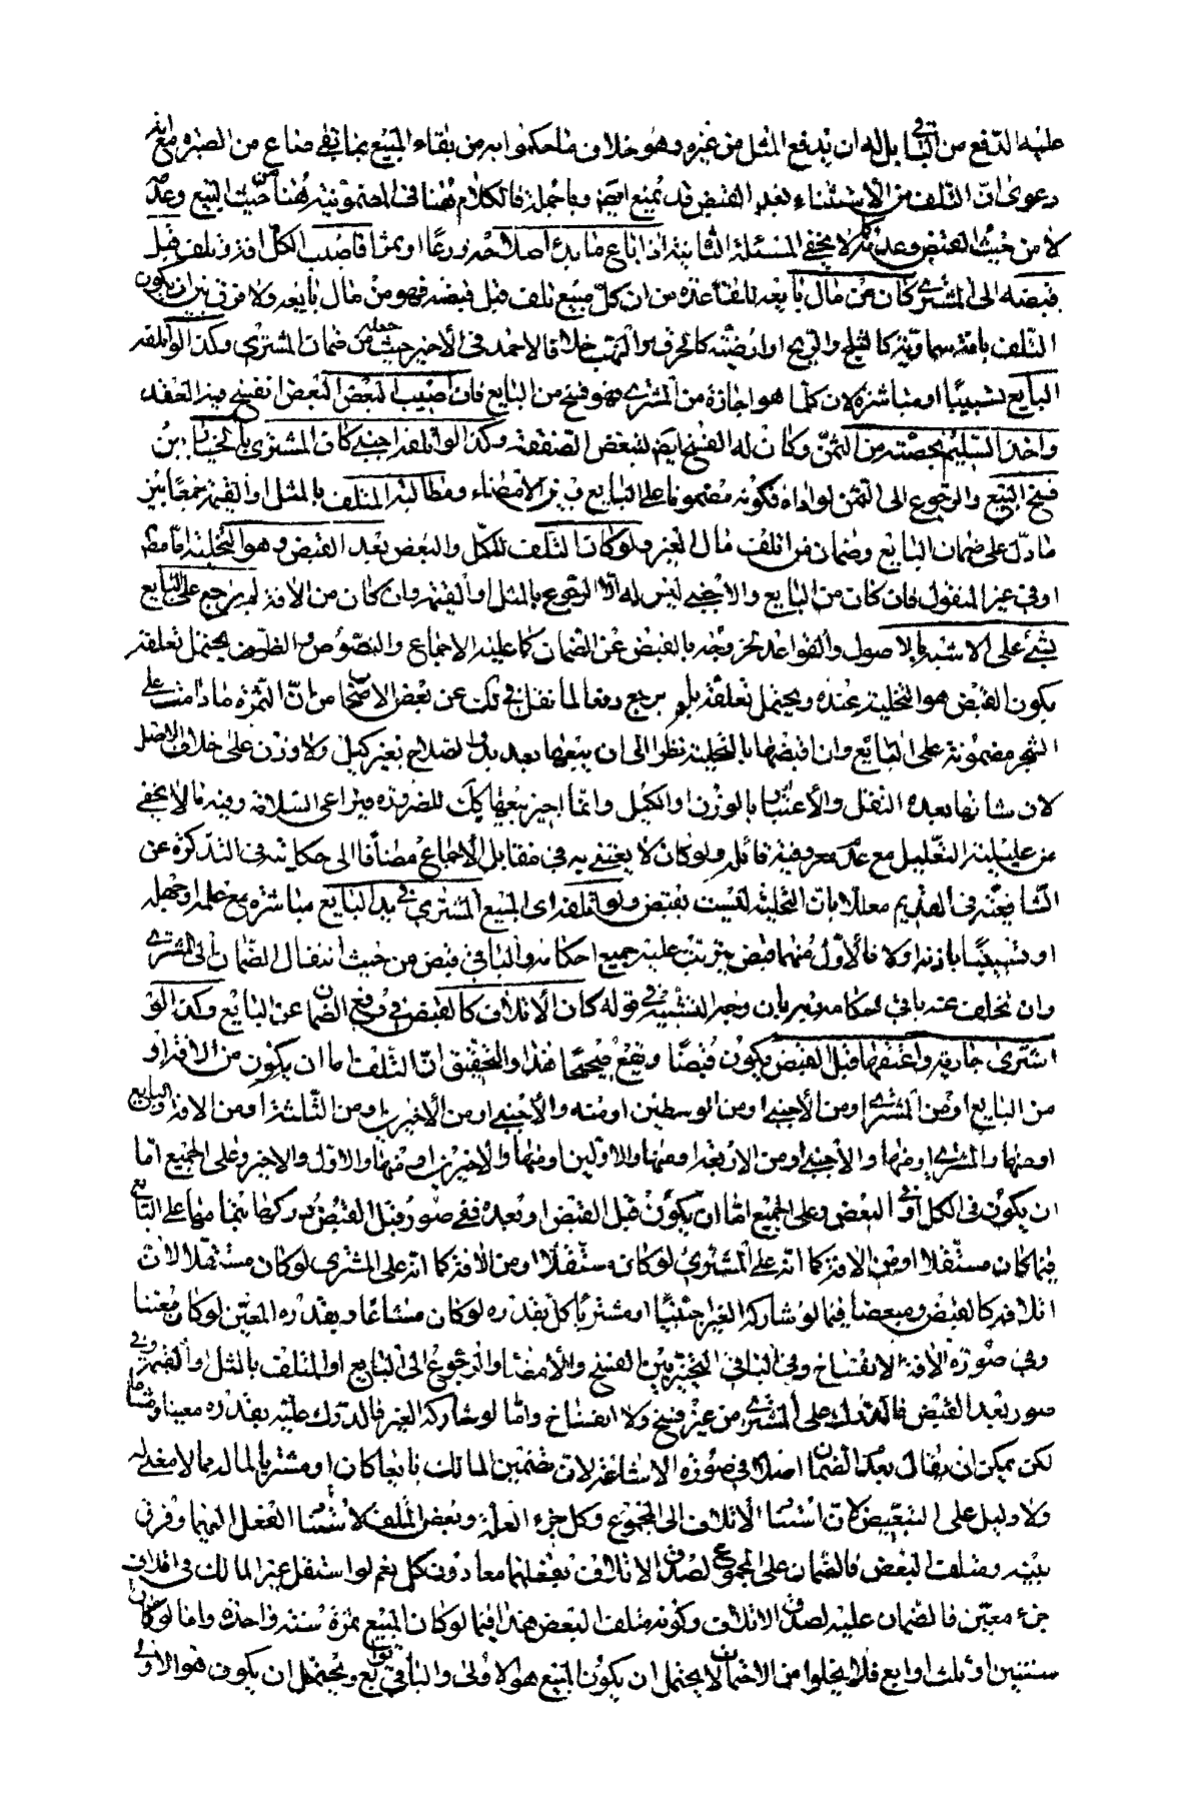 عليه الدفع من الباقي بل له ان يدفع المثل من غيره وهو خلاف ما حكموا به من بقاء المبيع بما بقي صاع من الصبرة مع انه
دعوى ان التلف من الاستثناء بعد القبض قد يمنع ايضا وبالجملة فالكلام هنا في المضمونية هنا من حيث البيع وعدمه
لا من حيث القبض وعدمه كما لا يخفى المسئلة الثانية اذا باع ما بدا صلاحه وزرعا او ثمرا فاصيب الكل افة وتلف قبل
قبضه الى المشتري كان من مال بايعه للقاعدة من ان كل مبيع تلف قبل قبضه فهو من مال بايعه ولا فرق بين ان يكون
التلف بافة سماوية كالثلج والريح او ارضية كالحرق والنهب خلافا لاحمد في الاخير حيث جعله من ضمان المشتري وكذا لو اتلفه
البايع تسبيبا او مباشرة لان كلما هو اجازة من المشتري فهو فسخ من البايع فان اصيب البعض البعض انفسخ فيه العقد
واخذ السليم بحصته من الثمن وكان له الفسخ ايضا لتبعض الصفقة وكذا لو اتلفه اجنبي كان المشتري بالخيار بين
فسخ البيع والرجوع الى الثمن لو اداه فكونه مضمونا على البايع وبين الامضاء ومطالبة المتلف بالمثل او القيمة جمعا بين
ما دل على ضمان البايع وضمان من اتلف مال الغير ولو كان التلف للكل والبعض بعد القبض وهو التخلية اما مط
او في غير المنقول فان كان من البايع والاجنبي ليس له الا الرجوع بالمثل او القيمة وان كان من الافة لم يرجع على البايع
بشيء على الاشبه بالاصول والقواعد لخروجه بالقبض عن الضمان كما عليه الاجماع والنصوص والظرف يحتمل تعلقه
يكون القبض هو التخلية عنده ويحتمل تعلقه بلم يرجع دفعا لما نقل في لك عن بعض الاصحاب من ان الثمرة ما دامت على
الشجر مضمونة على البايع وان اقبضها بالتخلية نظرا الى ان بيعها بعد بدو الصلاح بغير كيل ولا وزن على خلاف الاصل
لان شانها بعده النقل والاعتبار بالوزن او الكيل وانما اجيز بيعها كك للضرورة فيراعى السلامة وفيه ما لا يخفى
من عليلية التعليل مع عدم معروفية قائله ولو كان لا يعتنى به في مقابل الاجماع مضافا الى حكايته في التذكرة عن
الشافعية في القديم معللا بان التخلية ليست بقبض ولو اتلفه اي المبيع المشتري في يد البايع مباشرة مع علمه او جهله
او تسبيبا باذنه او لا فالاول منهما قبض يترتب عليه جميع احكامه والباقي قبض من حيث انتقال الضمان الى المشتري
وان تخلف عنه باقي احكامه وبه بان وجه التشبيه في قوله كان الاتلاف كالقبض في رفع الضمان عن البايع وكذا لو
اشترى جارية واعتقها قبل القبض يكون قبضا ويقع صحيحا هذا والتحقيق ان التلف اما ان يكون من الافة او
من البايع او من المشتري او من الاجنبي او من الوسطين او منه والاجنبي او من الاخيرين او من الثلثة او من الافة والبايع
او منها والمشتري او منها والاجنبي او من الاربعة او منها والاولين او منها والاخيرين او منها والاول والاخير وعلى الجميع اما
ان يكون في الكل او في البعض وعلى الجميع اما ان يكون قبل القبض او بعده ففي صور قبل القبض دركها بتمامها على البايع
فيما كان مستقلا او من الافة كما انه على المشتري لو كان مستقلا او من الافة كما انه على المشتري لو كان مستقلا لان
اتلافه كالقبض ومبعضا فيما لو شاركه الغير اجنبيا او مشتريا كل بقدره لو كان مشاعا وبقدره المعين لو كان معينا
وفي صورة الافة الانفساخ وفي الباقي التخيير بين الفسخ والامضاء والرجوع الى البايع او المتلف بالمثل او القيمة وفي
صور بعد القبض فالدرك على المشتري من غير فسخ ولا انفساخ واما لو شاركه الغير فالدرك عليه بقدره معينا ومشاعا
لكن يمكن ان يقال بعدم الضمان اصلا في صورة الاشاعة لان تضمين المالك بايعا كان او مشتريا لماله مما لا معنى له
ولا دليل على التبعيض لان استناد الاتلاف الى المجموع وكل جزء العلة وبعض المتلف لاستناد الفعل اليهما وفرق
بينه ومتلف البعض فالضمان على المجموع لصدق الاتلاف بفعلهما معا دون كل نعم لو استقل غير المالك في اتلاف
جزء معين فالضمان عليه لصدق الاتلاف وكونه متلف البعض هذا فيما لو كان المبيع ثمرة سنة واحدة واما لو كان
سنتين او ثلث او اربع فلا يخلو من الاحتمالات لا يحتمل ان يكون المبيع هو الاولى والباقي توابع ويحتمل ان يكون هو الاولى